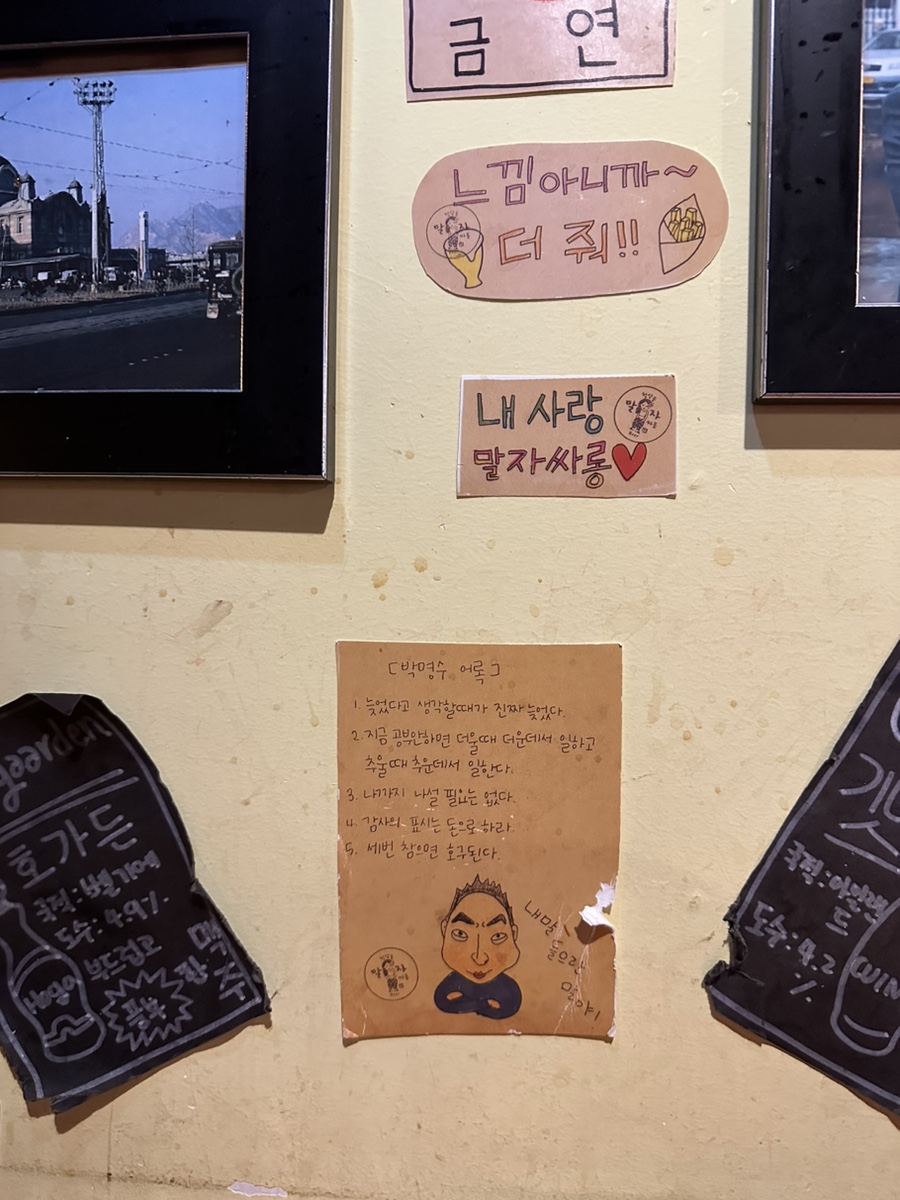 금 연
느낌아니까~
더 줘!!
내 사랑
말자싸롱
[박명수 어록]
1. 늦었다고 생각할때가 진짜 늦었다.
2. 지금 공부안하면 더울때 더운데서 일하고
추울때 추운데서 일한다.
3. 나까지 나설 필요는 없다.
4. 감사의 표시는 돈으로 하라.
5. 세번 참으면 호구된다.
내말
들으란
말야!
말자
호가든
국적:벨기에
도수:4.9%
부드럽고
도수:4.2
%